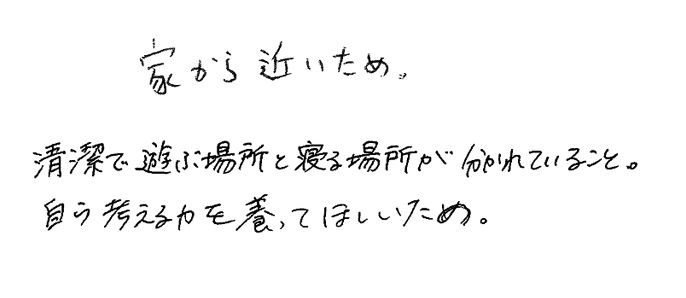 家から近いため。
清潔で遊ぶ場所と寝る場所が分かれていること。
自ら考える力を養ってほしいため。